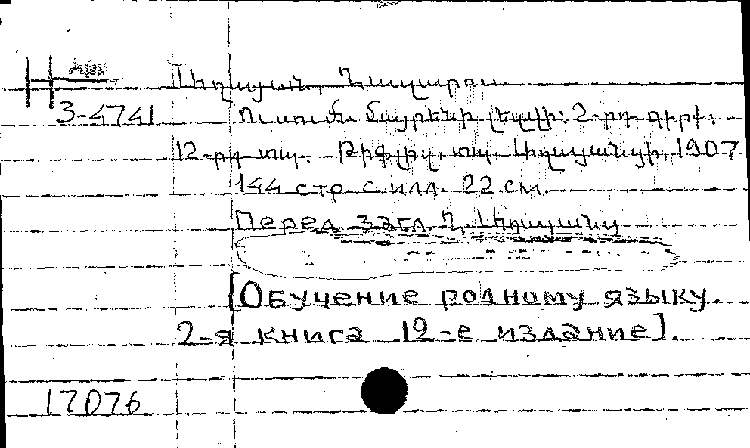 Н
Աղայան, Ղազարոս
3-4741 Ուսումն մայրենի լեզվի: 2-րդ գիրք.
12-րդ տպ. Թիֆլիս, տպ. 1907
144 стр с илл. 22 см.
Перед загл Ղ. Աղայանց
[Обучение родному языку.
2-я книга 12-е издание].
17076